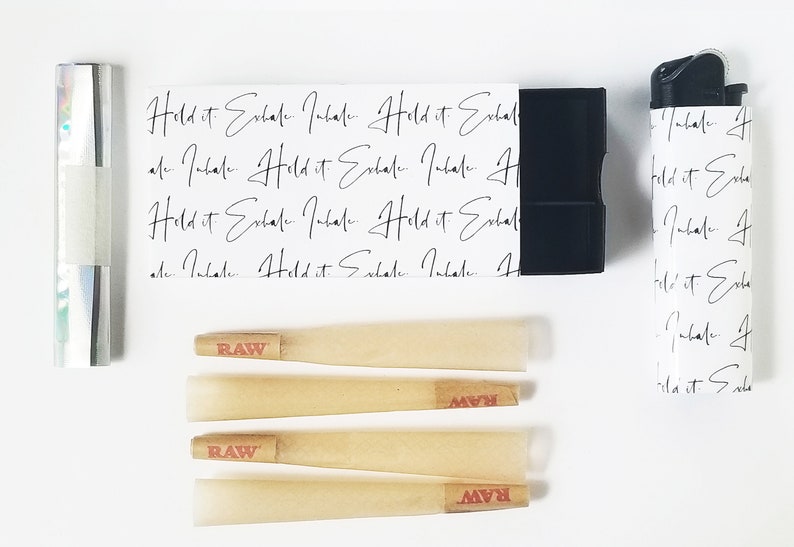 Hold it. Exhale. Inhale. Hold it. Exhale.
ale. Inhale. Hold it. Exhale. Inhale. H
Hold it. Exhale. Inhale. Hold it. Exhale
ale. Inhale. Hold it. Exhale. Inhale. H
. Inhale. H
old it. Exhal
. Inhale. H
old it. Exhal
. Inhale. H
old it. Exhal
RAW
RAW
RAW
RAW